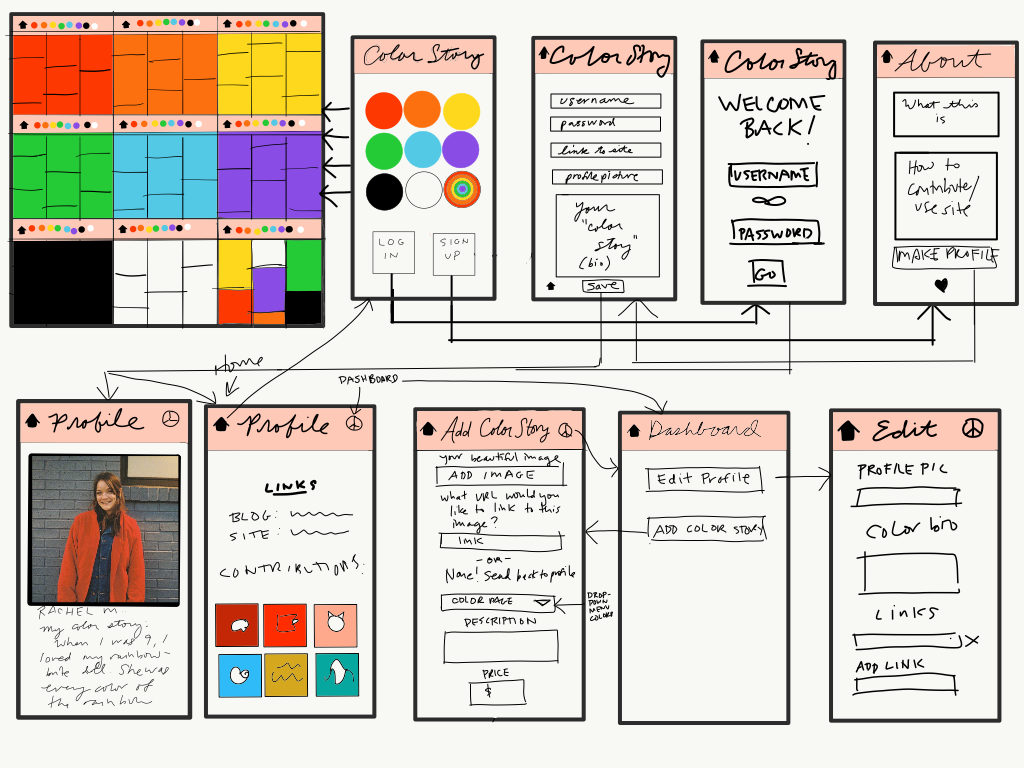 Color Story
LOG
IN
SIGN
UP
Color Story
username
password
link to site
profile picture
your
"color
story"
(bio)
save
Color Story
WELCOME
BACK!
USERNAME
PASSWORD
GO
About
What this
is
How to
contribute/
use site
MAKE PROFILE
Home
DASHBOARD
Profile
RACHEL M.
my color story:
When I was 9, I
loved my rainbow-
brite doll. She was
every color of
the rainbow
Profile
LINKS
BLOG:
SITE:
CONTRIBUTIONS:
Add Color Story
your beautiful image
ADD IMAGE
what URL would you
like to link to this
image?
link
-OR-
None! Send back to profile
COLOR PAGE
DROP-
DOWN
MENU
COLORS
DESCRIPTION
PRICE
$
Dashboard
Edit Profile
ADD COLOR STORY
Edit
PROFILE PIC
Color bio
Links
X
ADD LINK